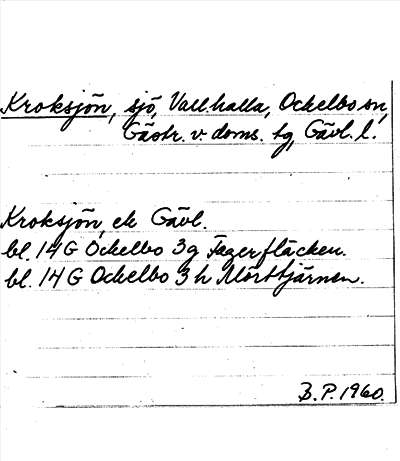 Kroksjön, sjö, Vallhalla, Ockelbo sn,
Gästr. v. doms. tg, Gävl. l.
Kroksjön, ek Gävl.
bl. 14 G Ockelbo 3g Fagerfläcken.
bl. 14 G Ockelbo 3h Mörttjärnen.
B.P. 1960.